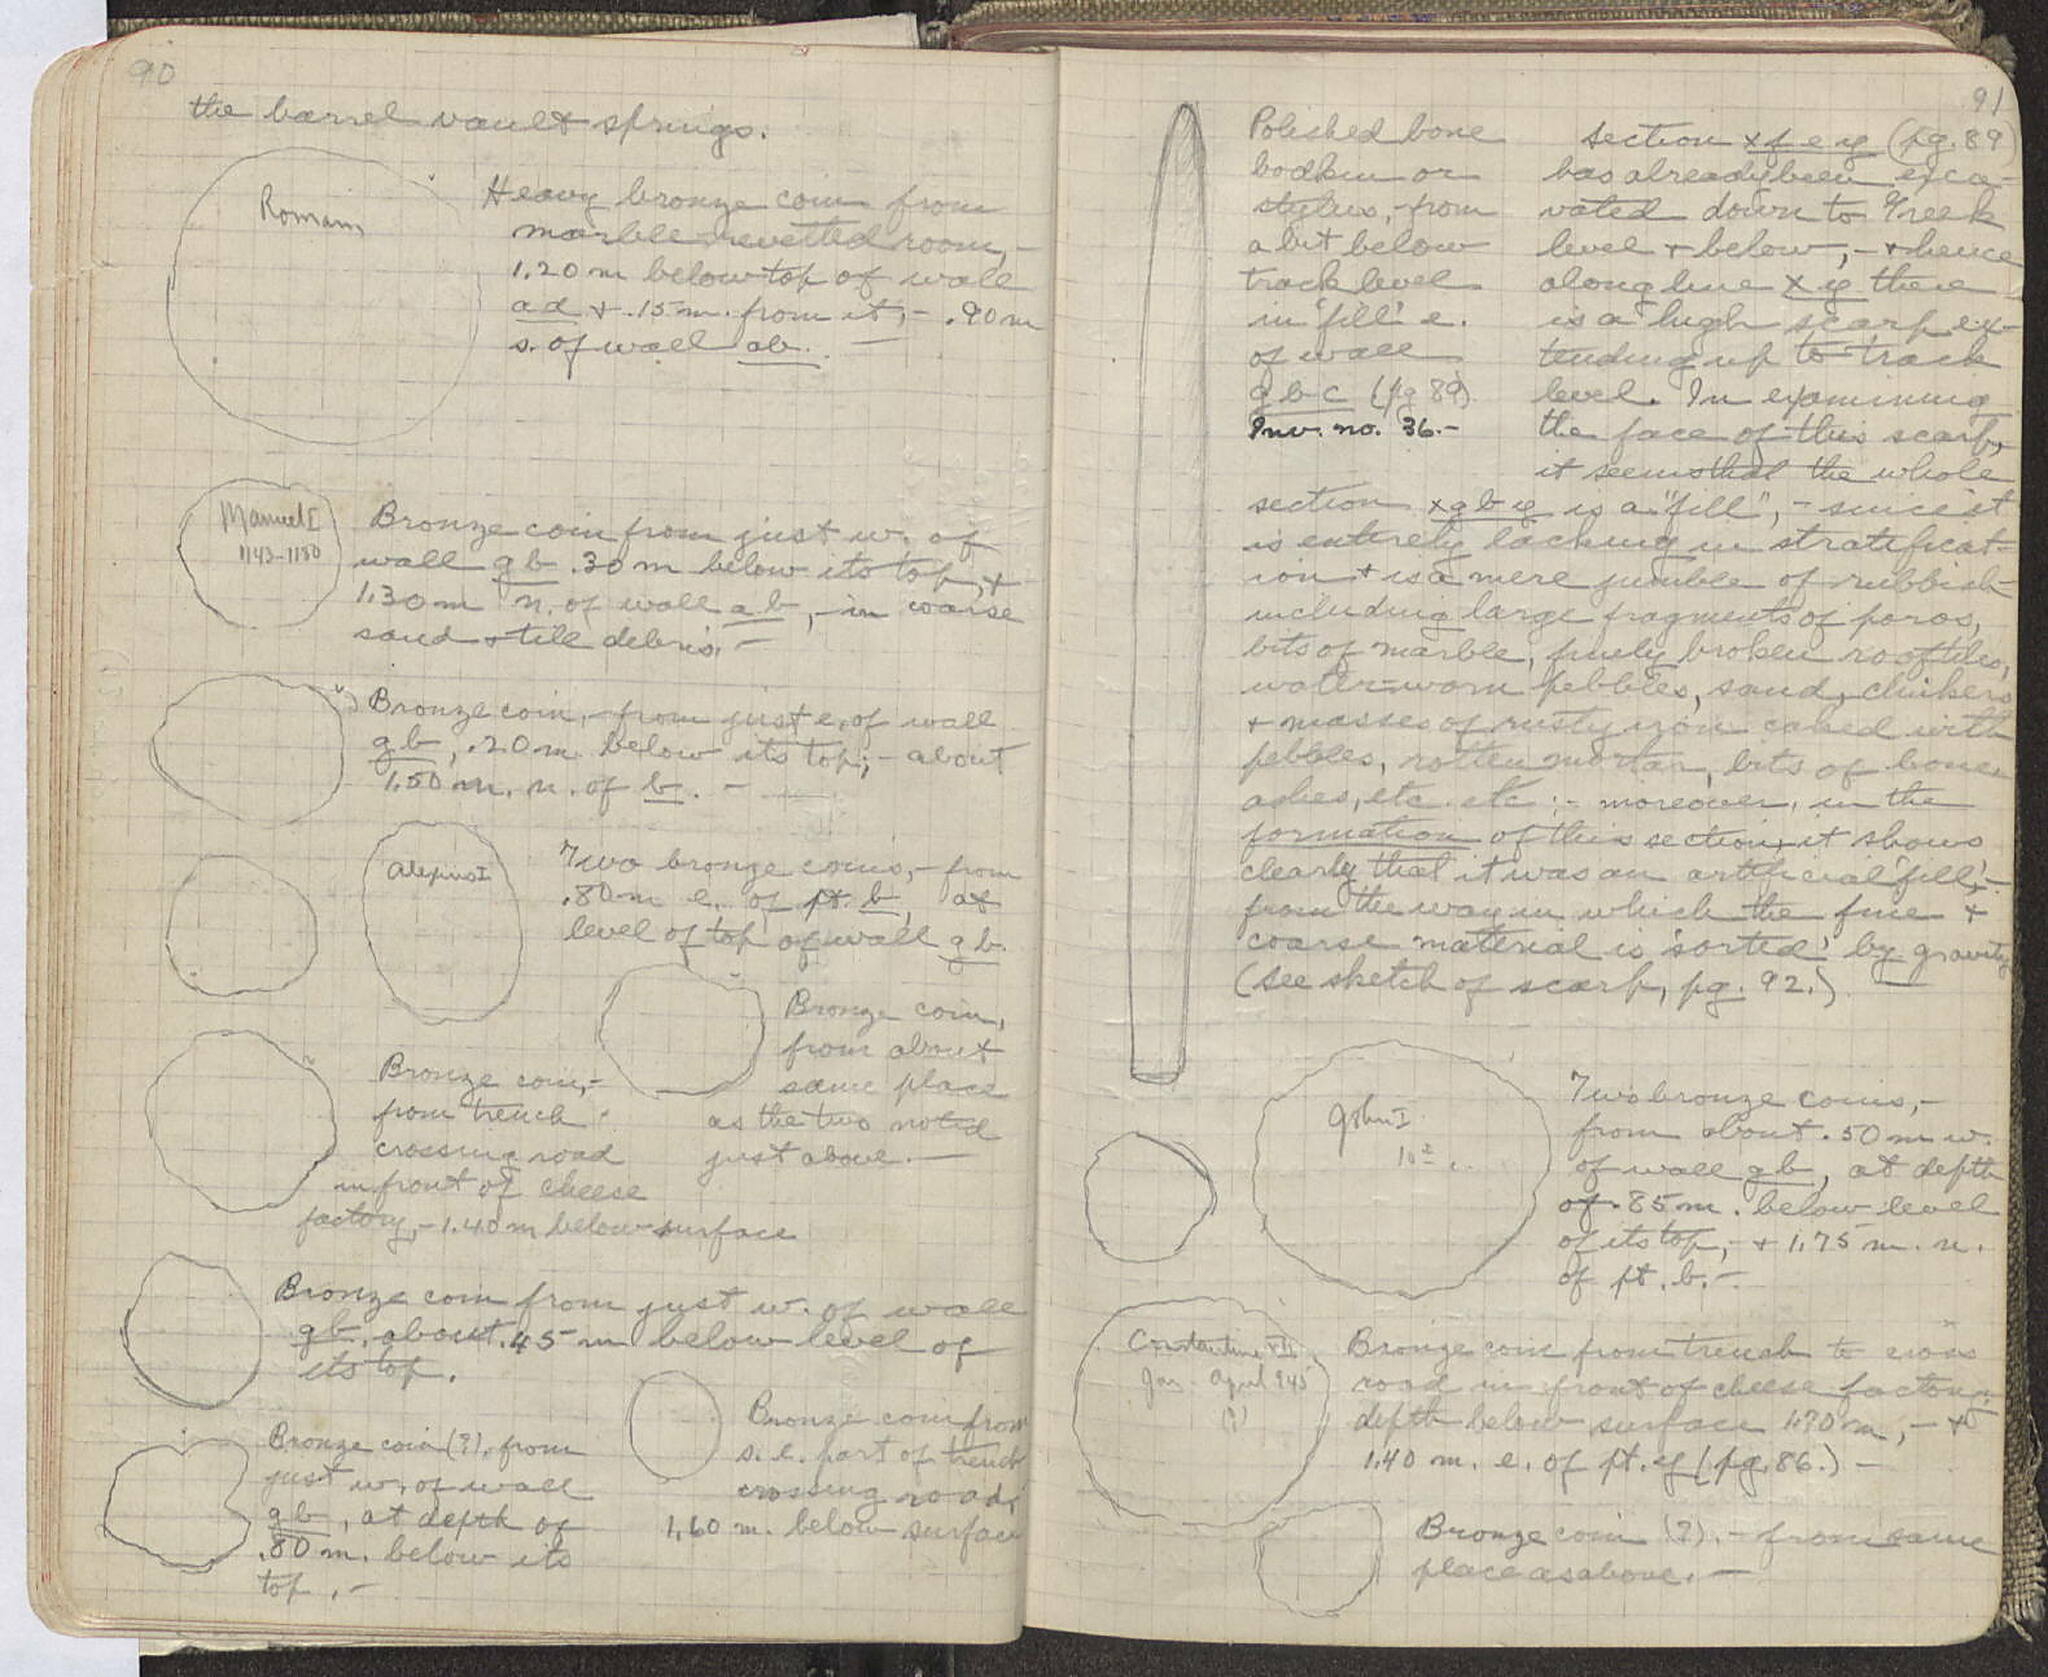 90
the barrel vault springs.
Roman
Heavy bronze coin from
marble revetted room, -
1.20 m below top of wall
ad + .15 m. from it, - .90 m
s. of wall ab. -
Manuel I
1143-1180
Bronze coin from just w. of
wall gb .30 m below its top, +
1.30 m n. of wall ab, - in coarse
sand + tile debris. -
Bronze coin, - from just e. of wall
gb, .20 m. below its top; - about
1.50 m. n. of b. -
Alexius I
Two bronze coins, - from
.80 m e. of pt. b, at
level of top of wall gb.
Bronze coin,
from about
same place
as the two noted
just above. -
Bronze coin, -
from trench
crossing road
in front of cheese
factory, - 1.40 m below surface
Bronze coin from just w. of wall
gb, about .45 m below level of
its top.
Bronze coin (?), from
just w. of wall
gb, at depth of
.80 m. below its
top. -
Bronze coin from
s. e. part of trench
crossing road,
1.60 m. below surface
91
Polished bone
bodkin or
stylus, - from
a bit below
track level
in 'fill' e.
of wall
gbc (pg 89)
Inv. no. 36. -
section xfey (pg. 89)
has already been exca-
vated down to Greek
level + below, - + hence
along line xy there
is a high scarp ex-
tending up to track
level. In examining
the face of this scarp,
it seems that the whole
section xgby is a "fill", - since it
is entirely lacking in stratificat-
ion + is a mere jumble of rubbish
including large fragments of poros,
bits of marble, finely broken rooftiles,
water-worn pebbles, sand, clinkers
+ masses of rusty iron caked with
pebbles, rotten mortar, bits of bone,
ashes, etc. etc; - moreover, in the
formation of this section, it shows
clearly that it was an artificial 'fill', -
from the way in which the fine +
coarse material is 'sorted' by gravity
(see sketch of scarp, pg. 92.) -
John I
Two bronze coins, -
from about .50 m w.
of wall gb, at depth
of .85 m. below level
of its top, - + 1.75 m. n.
of pt. b. -
Constantine VII
Jan - April 945
(?)
Bronze coin from trench to cross
road in front of cheese factory;
depth below surface 1.70 m, - +
1.40 m. e. of pt. y (pg. 86.) -
Bronze coin (?). - from same
place as above. -